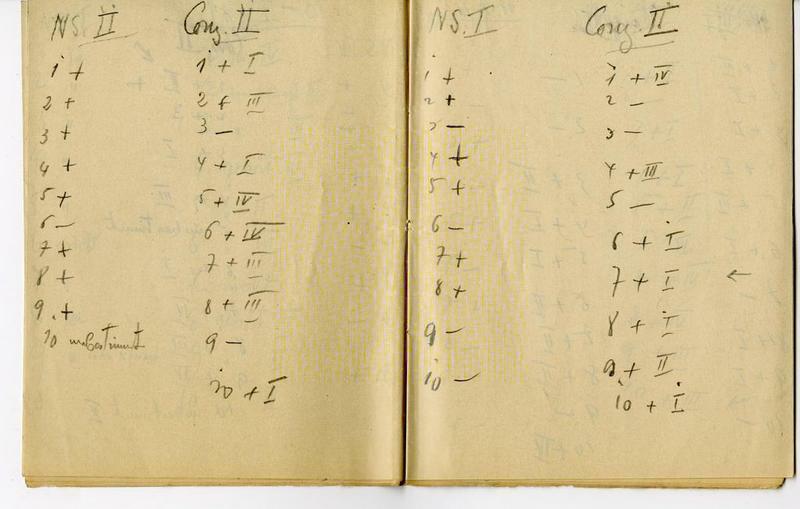 NS. II
1 +
2 +
3 +
4 +
5 +
6 —
7 +
8 +
9. +
10 unbestimmt
Conj. II
1 + I
2 + III
3 —
4 + I
5 + IV
6 + IV
7 + III
8 + III
9 —
10 + I
NS. I
1 +
2 +
3 —
4 +
5 +
6 —
7 +
8 +
9 —
10 —
Conj. II
1 + IV
2 —
3 —
4 + III
5 —
6 + I
7 + I ←
8 + I
9 + II
10 + I